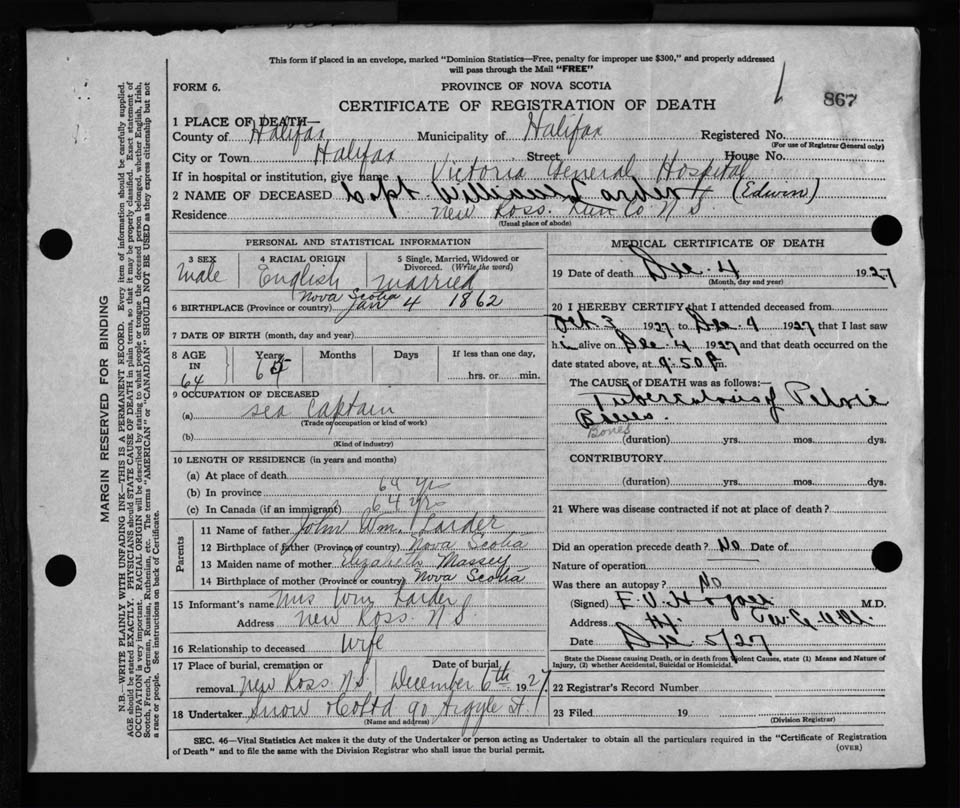 This form if placed in an envelope, marked "Dominion Statistics—Free, penalty for improper use $300," and properly addressed
will pass through the Mail "FREE"
FORM 6.
PROVINCE OF NOVA SCOTIA
867
CERTIFICATE OF REGISTRATION OF DEATH
1 PLACE OF DEATH—
County of Halifax Municipality of Halifax Registered No.
(For use of Registrar General only)
City or Town Halifax Street House No.
If in hospital or institution, give name Victoria General Hospital
2 NAME OF DECEASED Capt. William Larder (Edwin)
Residence New Ross. Lun Co N.S.
(Usual place of abode)
PERSONAL AND STATISTICAL INFORMATION
3 SEX 4 RACIAL ORIGIN 5 Single, Married, Widowed or
Divorced. (Write the word)
Male English Married
Nova Scotia
6 BIRTHPLACE (Province or country) Jan 4 1862
7 DATE OF BIRTH (month, day and year)
8 AGE Years Months Days If less than one day,
IN
64 64 hrs. or min.
9 OCCUPATION OF DECEASED
(a) Sea Captain
(Trade or occupation or kind of work)
(b)
(Kind of industry)
10 LENGTH OF RESIDENCE (in years and months)
(a) At place of death
(b) In province 64 yr
(c) In Canada (if an immigrant) 64 yrs
Parents
11 Name of father John Wm. Larder
12 Birthplace of father (Province or country) Nova Scotia
13 Maiden name of mother Elizabeth Massey
14 Birthplace of mother (Province or country) Nova Scotia
15 Informant's name Mrs Wm Larder
Address New Ross N.S.
16 Relationship to deceased Wife
17 Place of burial, cremation or Date of burial,
removal New Ross N.S. December 6th 1927
18 Undertaker Snow & Co Ltd 90 Argyle St.
(Name and address)
MEDICAL CERTIFICATE OF DEATH
19 Date of death Dec. 4 1927
(Month, day and year)
20 I HEREBY CERTIFY that I attended deceased from
Oct 3 1927 to Dec. 4 1927 that I last saw
h i alive on Dec. 4 1927 and that death occurred on the
date stated above, at 9.50 P.m.
The CAUSE of DEATH was as follows:—
Tuberculosis of Pelvic
Bones.
Bones
(duration) yrs. mos. dys.
CONTRIBUTORY
(duration) yrs. mos. dys.
21 Where was disease contracted if not at place of death?
Did an operation precede death? No Date of
Nature of operation
Was there an autopsy? No
(Signed) E. V. Hogan M.D.
Address Hfx.
Date Dec 5/27
State the Disease causing Death, or in death from Violent Causes, state (1) Means and Nature of
Injury, (2) whether Accidental, Suicidal or Homicidal.
22 Registrar's Record Number
23 Filed 19
(Division Registrar)
SEC. 46—Vital Statistics Act makes it the duty of the Undertaker or person acting as Undertaker to obtain all the particulars required in the "Certificate of Registration
of Death" and to file the same with the Division Registrar who shall issue the burial permit.
(OVER)
MARGIN RESERVED FOR BINDING
N.B.—WRITE PLAINLY WITH UNFADING INK—THIS IS A PERMANENT RECORD. Every item of information should be carefully supplied.
AGE should be stated EXACTLY. PHYSICIANS should STATE CAUSE OF DEATH in plain terms, so that it may be properly classified. Exact statement of
OCCUPATION is very important. RACIAL ORIGIN will be described by stating to what people or tongue the deceased person belonged, whether English, Irish,
Scotch, French, German, Russian, Ruthenian, etc. The terms "AMERICAN" or "CANADIAN" SHOULD NOT BE USED as they express citizenship but not
a race or people. See instructions on back of Certificate.